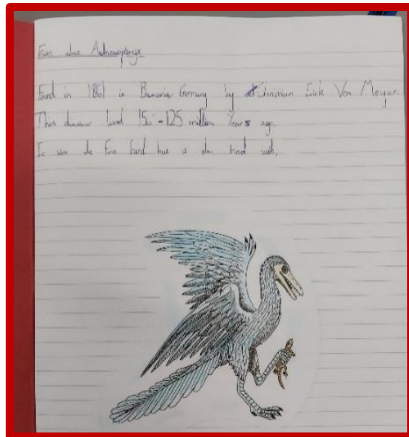 Facts about Archaeopteryx
Found in 1861 in Bavaria Germany by Christian Erich Von Meyer.
This dinosaur lived 150-125 million Years ago.
It was the first bird but it also had teeth.